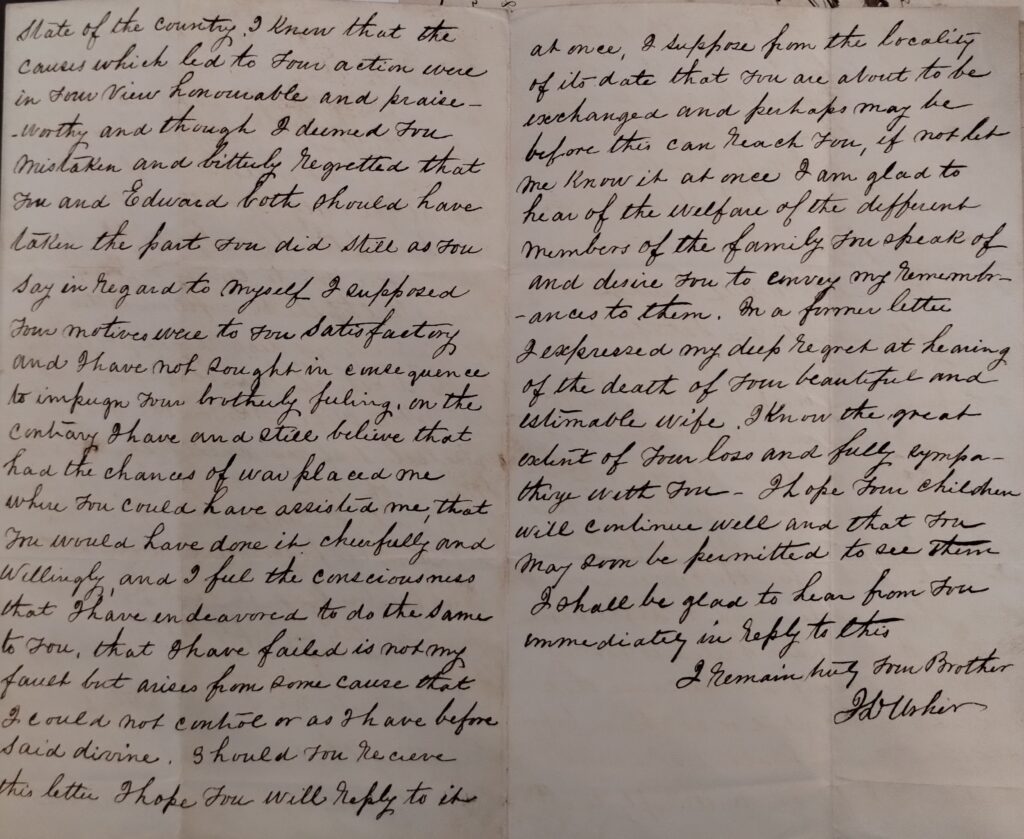 state of the country. I Know that the
causes which led to Your action were
in Your View honourable and praise-
-worthy and though I deemed You
Mistaken and bitterly regretted that
You and Edward both should have
taken the part You did still as You
say in regard to Myself I supposed
Your motives were to You satisfactory
and I have not sought in consequence
to impugn Your brotherly feeling, on the
contrary I have and still believe that
had the chances of war placed me
where You could have assisted me, that
You would have done it cheerfully and
Willingly, and I feel the consciousness
that I have endeavored to do the same
to You, that I have failed is not my
fault but arises from some cause that
I could not control or as I have before
said divine. Should You Recieve
this letter I hope You Will Reply to it
at once, I suppose from the locality
of its date that You are about to be
exchanged and perhaps may be
before this can reach You, if not let
me Know it at once I am glad to
hear of the welfare of the different
members of the family You speak of
and desire You to convey my Remembr-
-ances to them. In a former letter
I expressed my deep Regret at hearing
of the death of Your beautiful and
estimable Wife. I Know the great
extent of Your loss and fully sympa-
thize with You - I hope Your children
will continue well and that You
May soon be permitted to see them
I shall be glad to hear from You
immediately in Reply to this
I Remain truly Your Brother
Usher